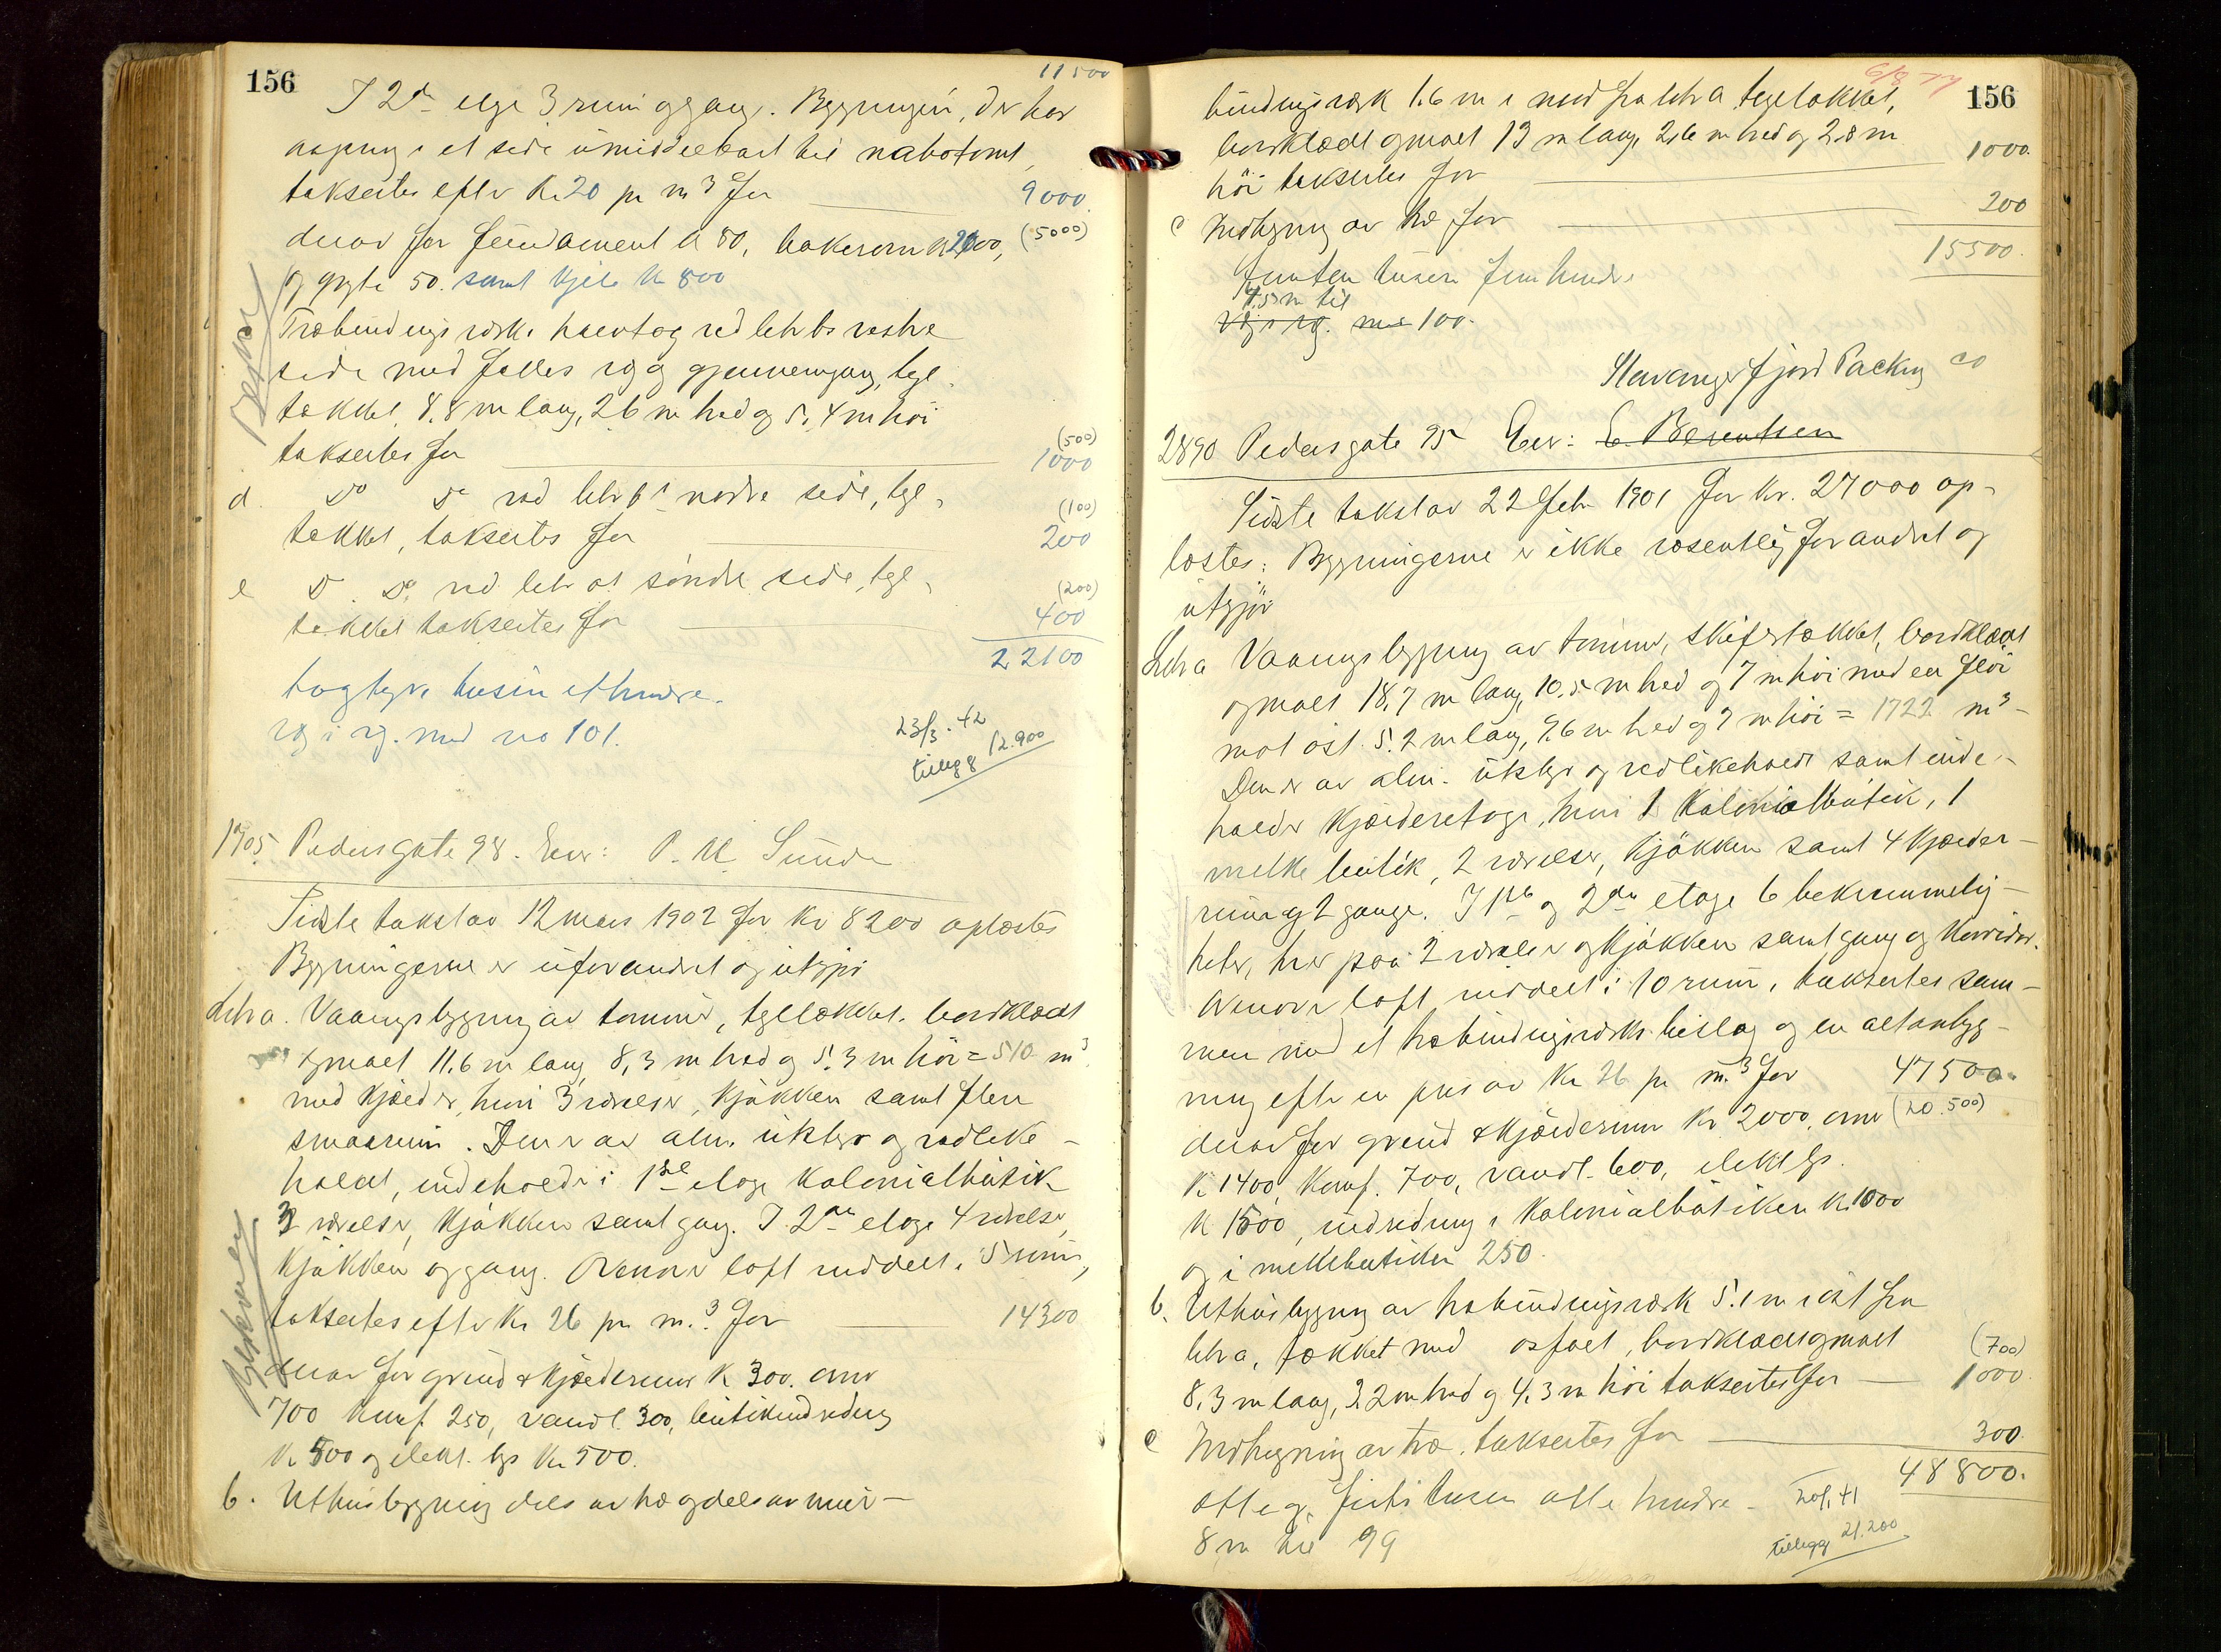 156
11500
I 2den etge 3 rum og gang. Bygningen, der har
aapning i et side umiddelbart til nabotomt,
takseertes efter Kr 20 pr m3 for 9000.
derav for fundament k 80, bakerovn k 2000, (5000)
og gryte 50. samt kjele kr 800
Træbindingsværks halvtag ved letr bs vestre
side med fælles væg og gjennemgang, tegl-
tækket 8.8 m lang, 2.6 m bred og 5.4 m høi
takseertes for (500) 1000
d. Do Do ved litr bs nordre side, tegl-
tækket, takseertes for (100) 200
e Do. Do. ved litr as søndre side, tegl-
tækket takseertes for (200) 400
22100
toogtyve tusin ethundre.
væg i væg. med no 101.
23/3.42
tillegg 12.900
1705. Pedersgate 98. Eier: P. M. Sunde
Sidste takst av 12 mars 1902 for Kr 8200 oplæstes
Bygningerne er uforandret og utgjør
Litr a. Vaaningsbygning av tømmer, tegltækket, bordklædt
og malt 11.6 m lang, 8,3 m bred og 5.3 m høi = 510 m3
med kjælder, hvori 3 værelser, kjøkken samt flere
smaarum. Den er av alm. utstyr og vedlike-
holdt, indeholder i 1ste etage kolonialbutik
2 værelser, kjøkken samt gang. I 2den etage 4 værelser,
kjøkken og gang. Ovenover loft inddelt i 5 rum,
takseertes efter Kr 26 pr m.3 for 14300
derav for grund & kjælderum k 300. ovne
700 komf. 250, vandl. 300, butikindredning
k 500 og elekt. lys kr 500.
b. Uthusbygning dels av træ og dels av mur-
156
6/8-74
bindingsverk 1.6 m i nord fra litr a tegltækket,
bordklædt og malt 13 m lang, 2,6 m bred og 2.8 m
høi takseertes for 1000.
c Indhegning av træ for 200
15500.
Femten tusen fem hundre
4.5 m til
væg i væg. med 100.
Stavangerfjord Packing co
2890 Pedersgate 95 Eier: E. Berentsen
Sidste takst av 22 febr 1901 for kr. 27000 op-
læstes. Bygningerne er ikke væsentlig forandret og
utgjør
Litr a Vaaningsbygning av tømmer, skifertækket, bordklædt
og malt 18.7 m lang, 10.5 m bred og 7 m høi med en fløi
mot øst 5.2 m lang, 9.6 m bred og 7 m høi = 1722 m3-
Den er av alm. utstyr og vedlikeholdt samt inde-
holder kjælderetage, hvori 1 Kolonialbutik, 1
melkebutik, 2 værelser, kjøkken samt 4 kjælder-
rum og 2 gange. I 1ste og 2den etage 6 bekvemmelig-
heter, hver paa 2 værelser og kjøkken samt gang og korridor.
Ovenover loft inddelt i 10 rum, takseertes sam-
men med et træbindingsverks bislag og en altanbyg-
ning efter en pris av Kr 26 pr m.3 for 47500.
derav for grund & kjælderrum kr 2000. ovne (20.500)
k 1400, komf. 700, vandl. 600, elekt lys
k 1500, indredning i kolonialbutiken k. 1000
og i melkebutiken 250.
b. Uthusbygning av træbindingsverk 5.1 m i øst fra
litr a, tækket med asfalt, bordklædt og malt
8.3 m lang, 3.2 m bred og 4,3 m høi takseertes for (700) 1000.
c Indhegning av træ. takseertes for 300.
48800.
otte og førti tusen otte hundre-
8 m til 99
20/1 41
tillegg 21.200